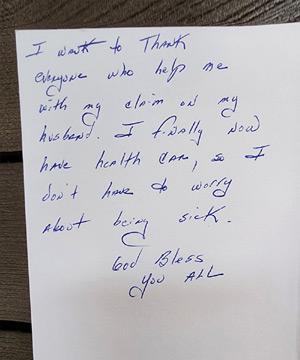 I want to Thank
everyone who help me
with my claim on my
husband. I finally now
have health car, so I
don't have to worry
about being sick.
God Bless
you All